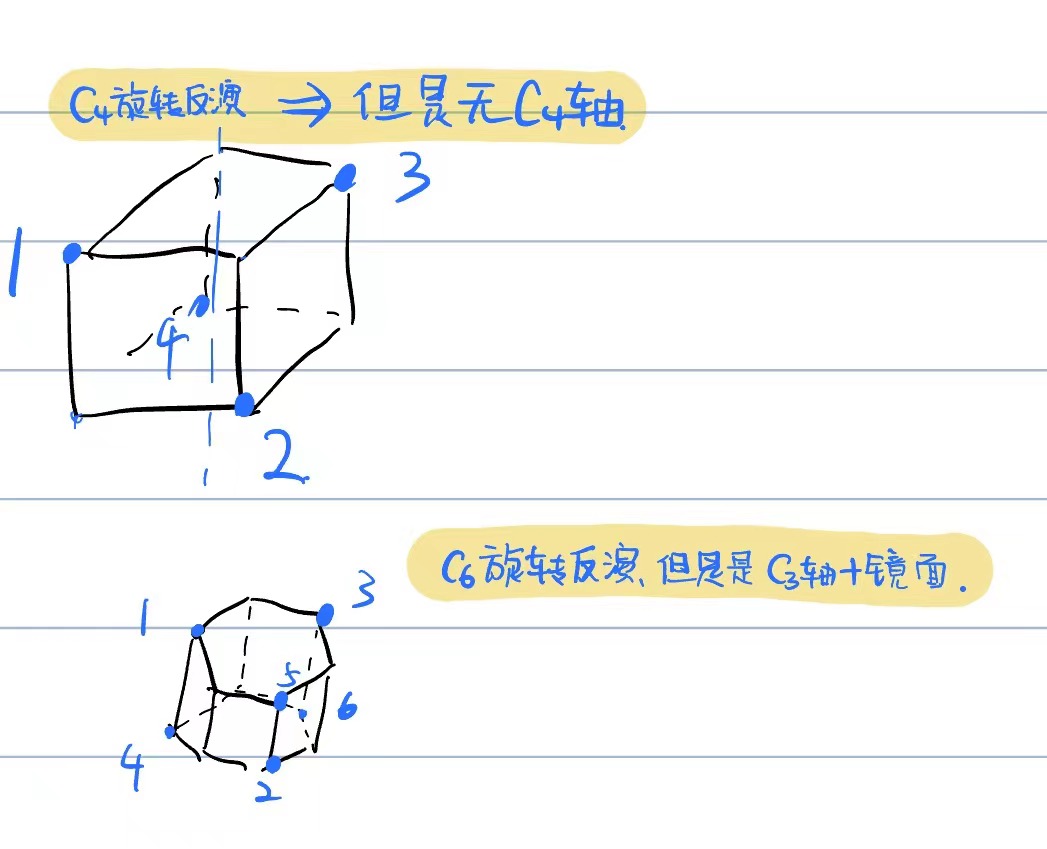 C4旋转反演 ⇒ 但是无C4轴.
3
1
4
2
C6旋转反演、但是是C3轴+镜面.
3
1
5
6
4
2